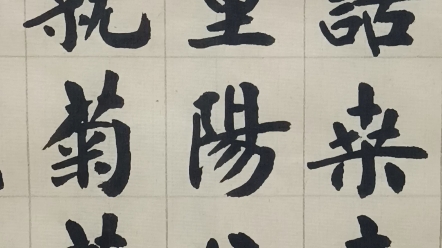 話桒
重陽
就菊